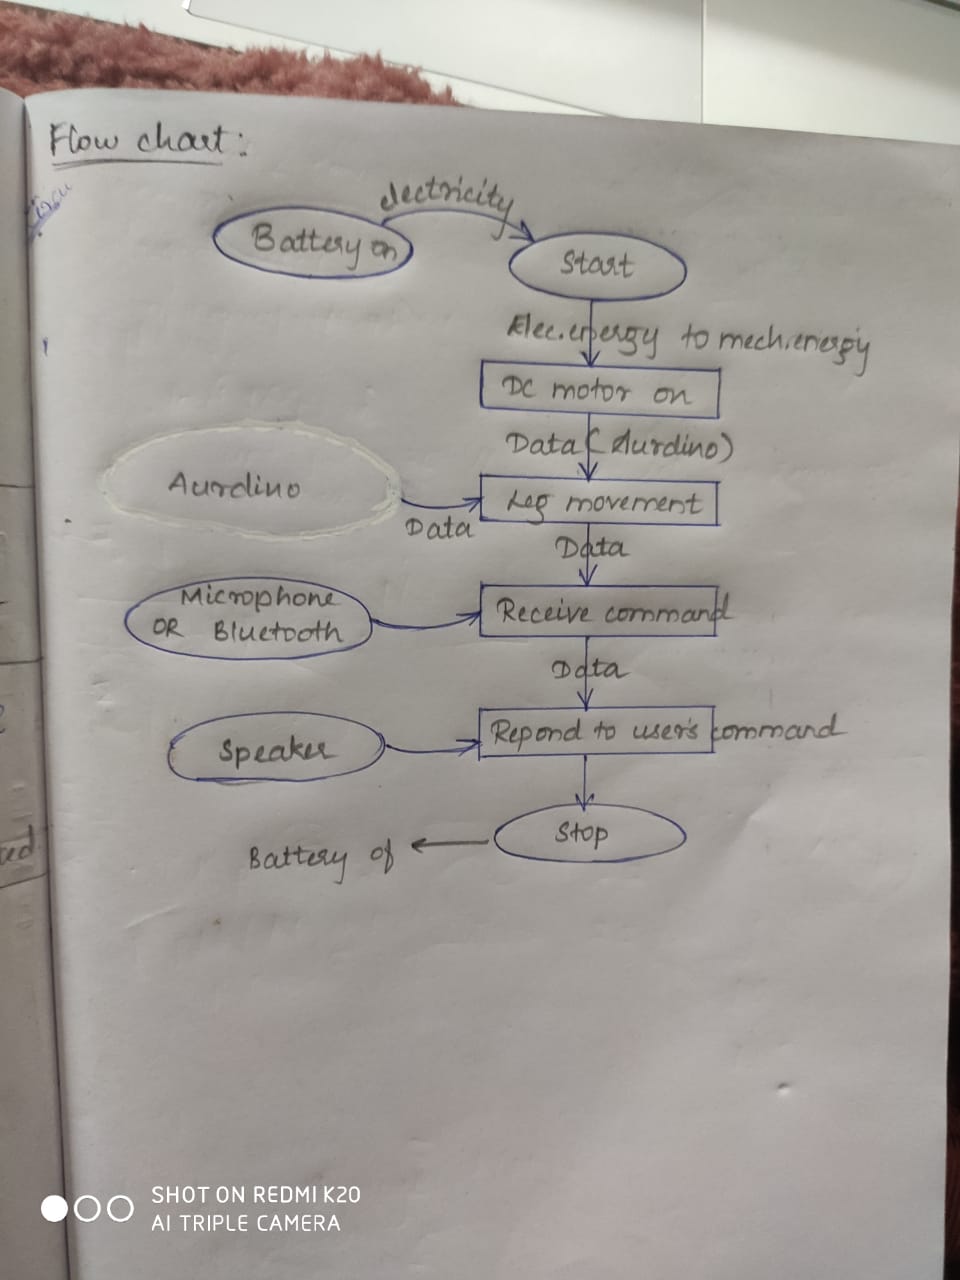 Flow chart:
electricity
Battery on
Start
Elec.energy to mech.energy
DC motor on
Data (Aurdino)
Aurdino
Data
Leg movement
Data
Microphone
OR Bluetooth
Receive command
Data
Speaker
Repond to user's command
Stop
Battery of
SHOT ON REDMI K20
AI TRIPLE CAMERA